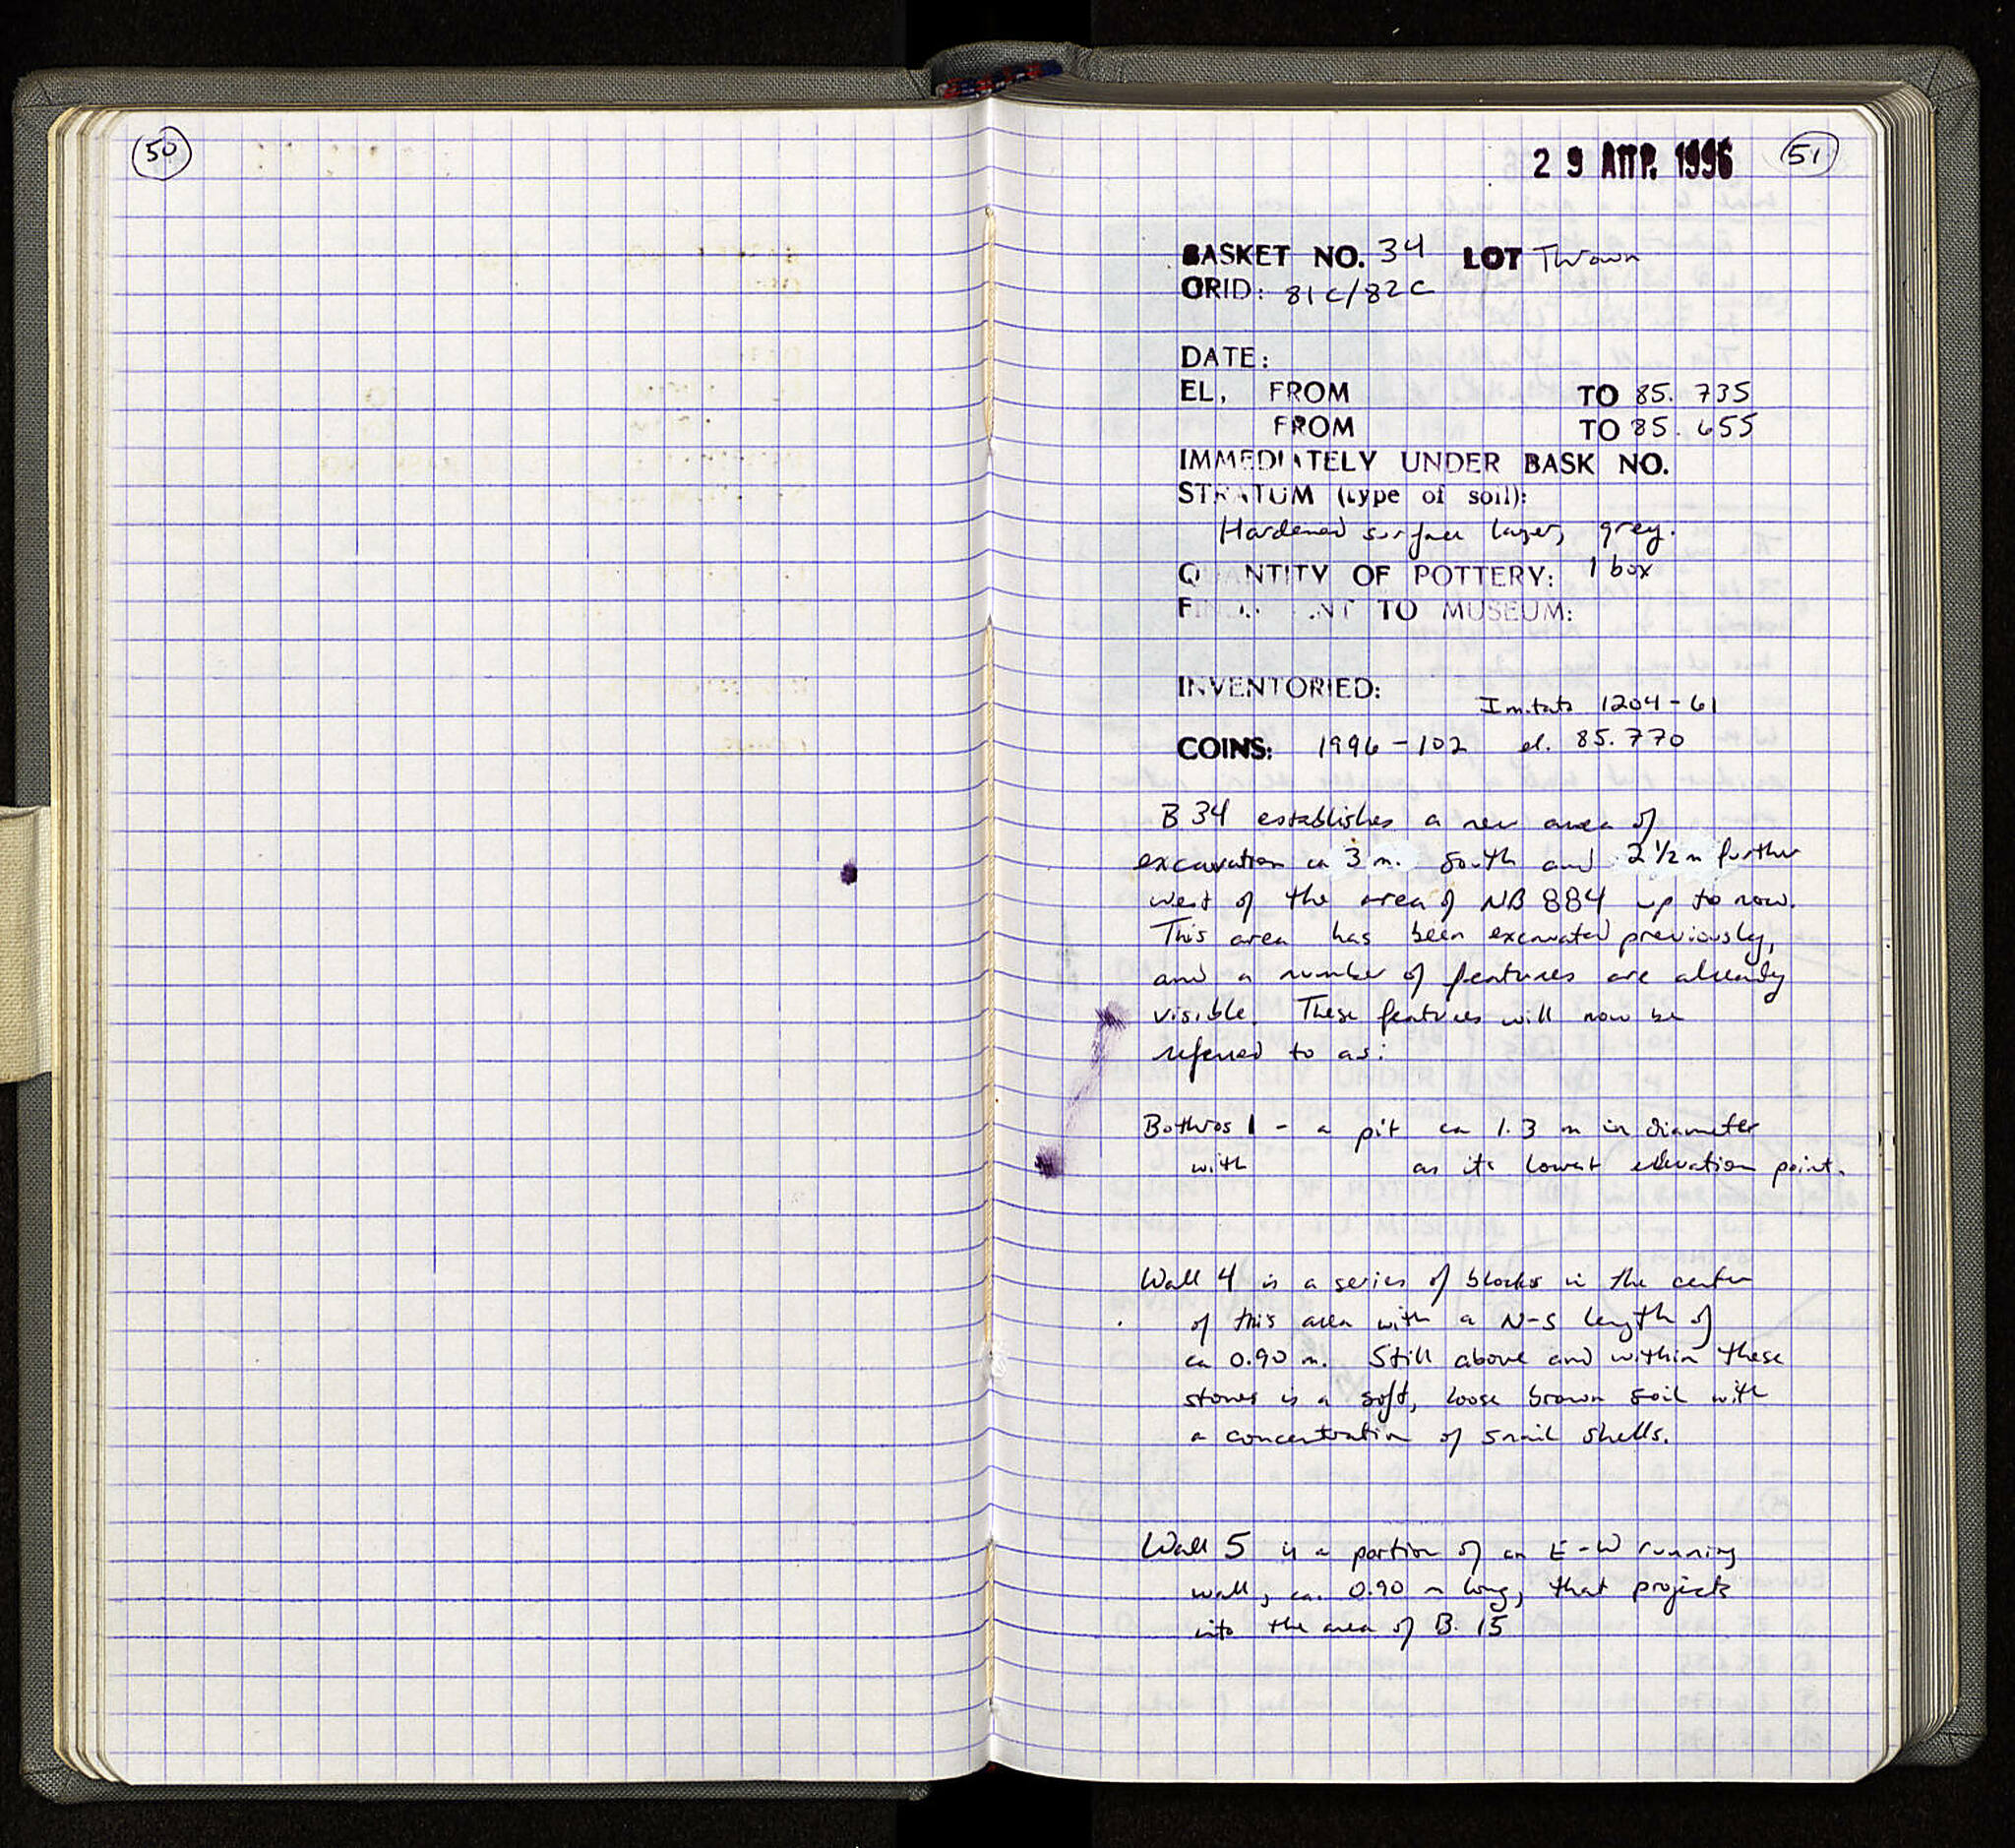 50
2 9 ΑΠΡ. 1996
51
BASKET NO. 34 LOT Thrown
GRID: 81C/82C
DATE:
EL, FROM TO 85.735
FROM TO 85.655
IMMEDIATELY UNDER BASK NO.
STRATUM (type of soil):
Hardened surface layer, grey.
QUANTITY OF POTTERY: 1 box
FIND ENT TO MUSEUM:
INVENTORIED:
Imitatn 1204-61
COINS: 1996-102 el. 85.770
B 34 establishes a new area of
excavation ca 3 m. South and 2 1/2 m further
west of the area of NB 884 up to now.
This area has been excavated previously,
and a number of features are already
visible. These features will now be
referred to as:
Bothros 1 - a pit ca 1.3 m in diameter
with as its lowest elevation point.
Wall 4 is a series of blocks in the center
of this area with a N-S length of
ca 0.90 m. Still above and within these
stones is a soft, loose brown soil with
a concentration of snail shells.
Wall 5 is a portion of an E-W running
wall, ca. 0.90 m long, that projects
into the area of B. 15